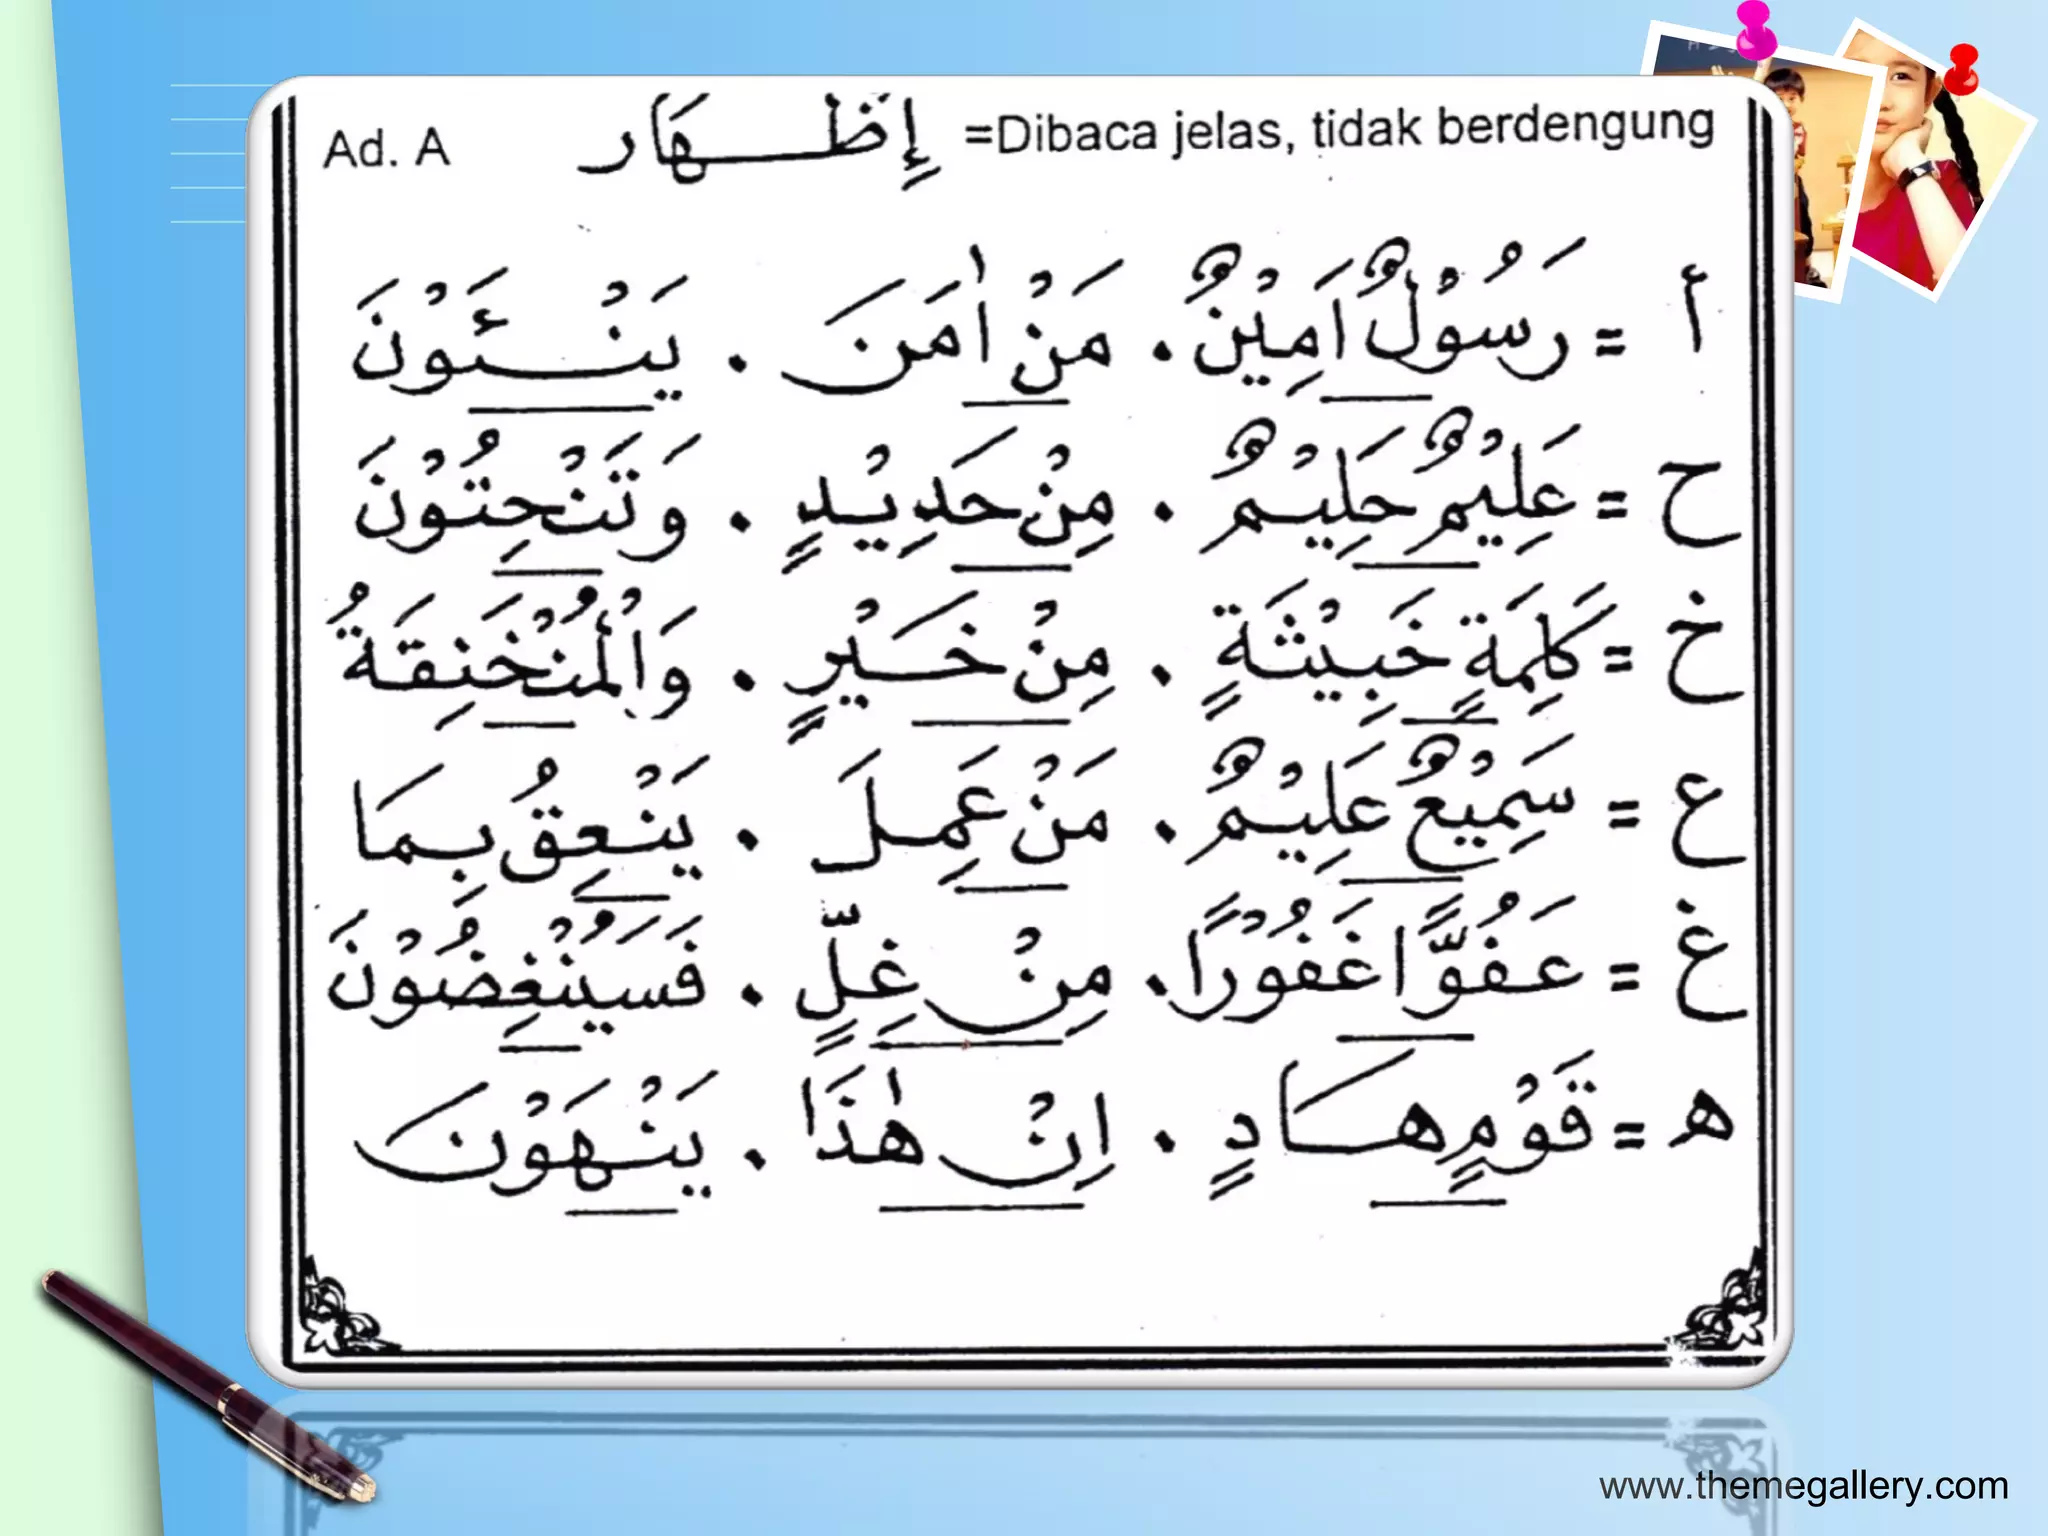 Ad. A إِظْهَار =Dibaca jelas, tidak berdengung
أ = رَسُوْلٌ اَمِيْنٌ . مَنْ اٰمَنَ . يَنْئَوْنَ
ح = عَلِيْمٌ حَلِيْمٌ . مِنْ حَدِيْدٍ . وَتَنْحِتُوْنَ
خ = كَلِمَةٍ خَبِيْثَةٍ . مِنْ خَيْرٍ . وَالْمُنْخَنِقَةُ
ع = سَمِيْعٌ عَلِيْمٌ . مَنْ عَمِلَ . يَنْعِقُ بِمَا
غ = عَفُوًّا غَفُوْرًا . مِنْ غِلٍّ . فَسَيُنْغِضُوْنَ
ه = قَوْمٍ هَادٍ . اِنْ هٰذَا . يَنْهَوْنَ
www.themegallery.com